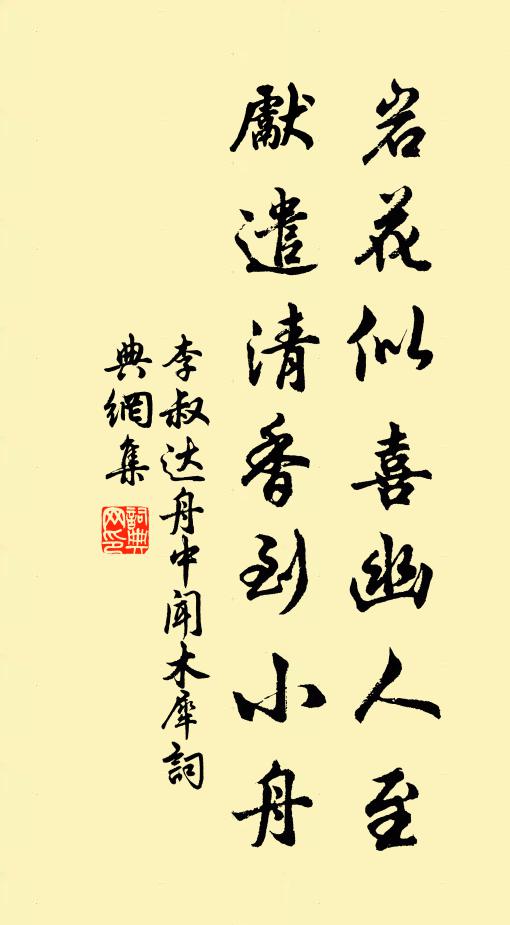 岩花似喜幽人至
獻遣清香到小舟
李叔达舟中闻木犀詞
典網集
詞典
网印